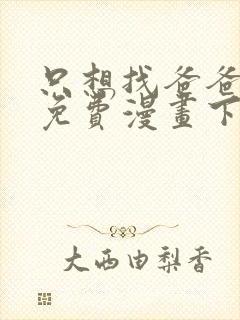 只想找爸爸
免費漫畫下
大西由梨香